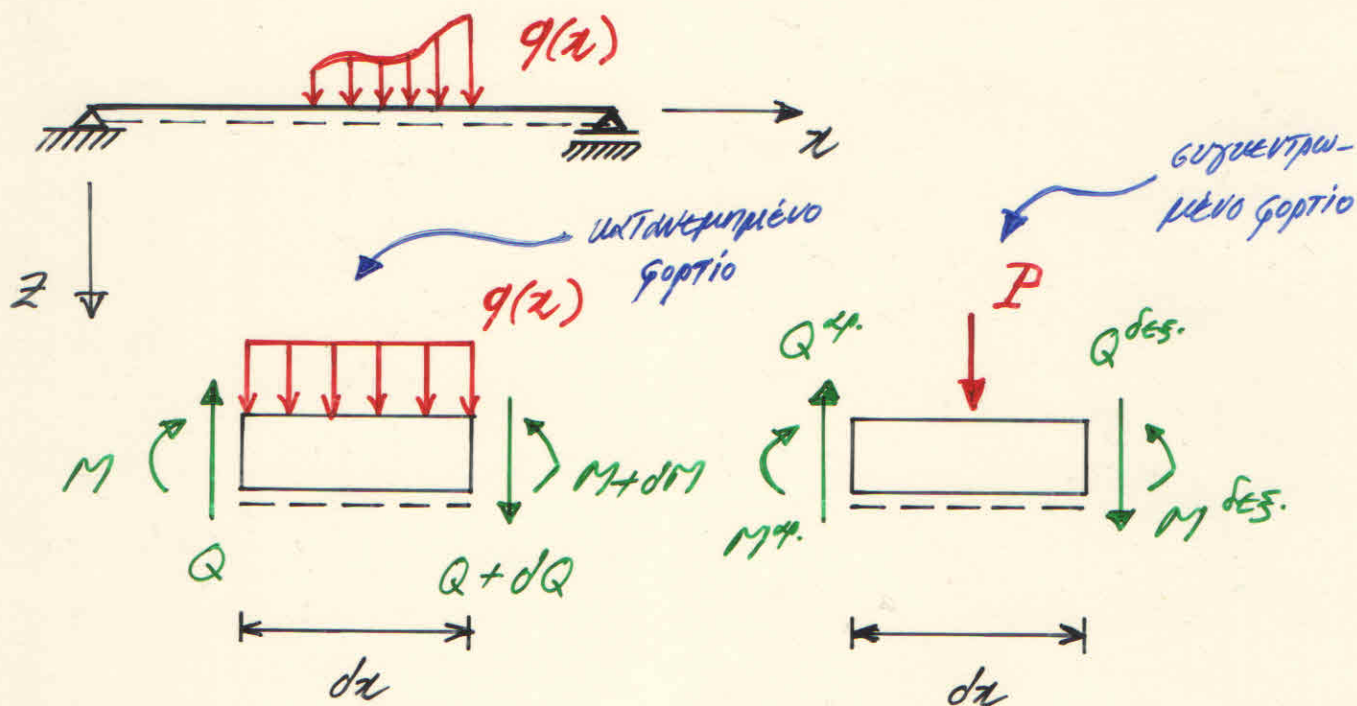 q(x)
x
z
κατανεμημένο
φορτίο
συγκεντρω-
μένο φορτίο
q(x)
P
Q^αρ.
Q^δεξ.
M
M+dM
M^αρ.
M^δεξ.
Q
Q+dQ
dx
dx